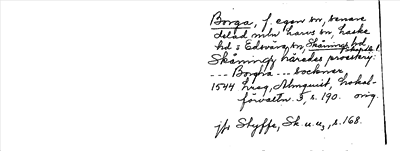 Borga, f. egen sn, senare
delad mln Larvs sn, Laske
hd o Edsvära sn, Skånings hd
Skånings härads prosteri:
--- Borgha --- sockner,
1544 hreg, Almquist, Lokal-
förvaltn. 3, s. 190. orig.
jfr Styffe, Sk. u. u3, s. 168.